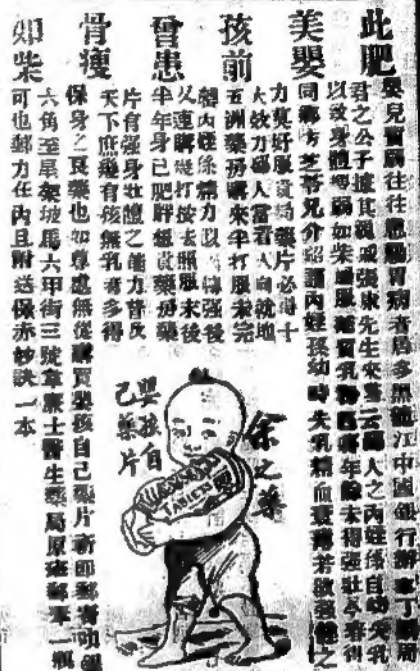 此肥
美嬰
孩前
曾患
骨瘦
如柴
嬰兒 病往往患 胃病者居多黑龍江中國銀行
君之公子據其親戚張康先生來書云鄙人之內姪孫自幼失乳
以致身體瘦弱如柴雖服 乳物 年餘未得強壯今春得
同鄉方芝 兄介紹謂內姪孫幼時失乳精血衰薄若欲強健之
力莫好服貴局藥片必得十
大效力鄙人當着人向就地
五洲藥房購來半打服未完
內姪孫精力以 轉強後
又連購幾打按法照服未後
半年身已肥胖想貴藥房藥
片有強身壯體之能力普及
天下庶幾有孩無乳者多得
保身之良藥也如尊處無從購買嬰孩自己藥片請即郵寄功銀
六角至星架坡馬六甲街三號韋廉士醫生藥局原班郵奉一瓶
可也郵力在內且附送保赤妙訣一本
余之藥
嬰孩自
己藥片
TABLETS